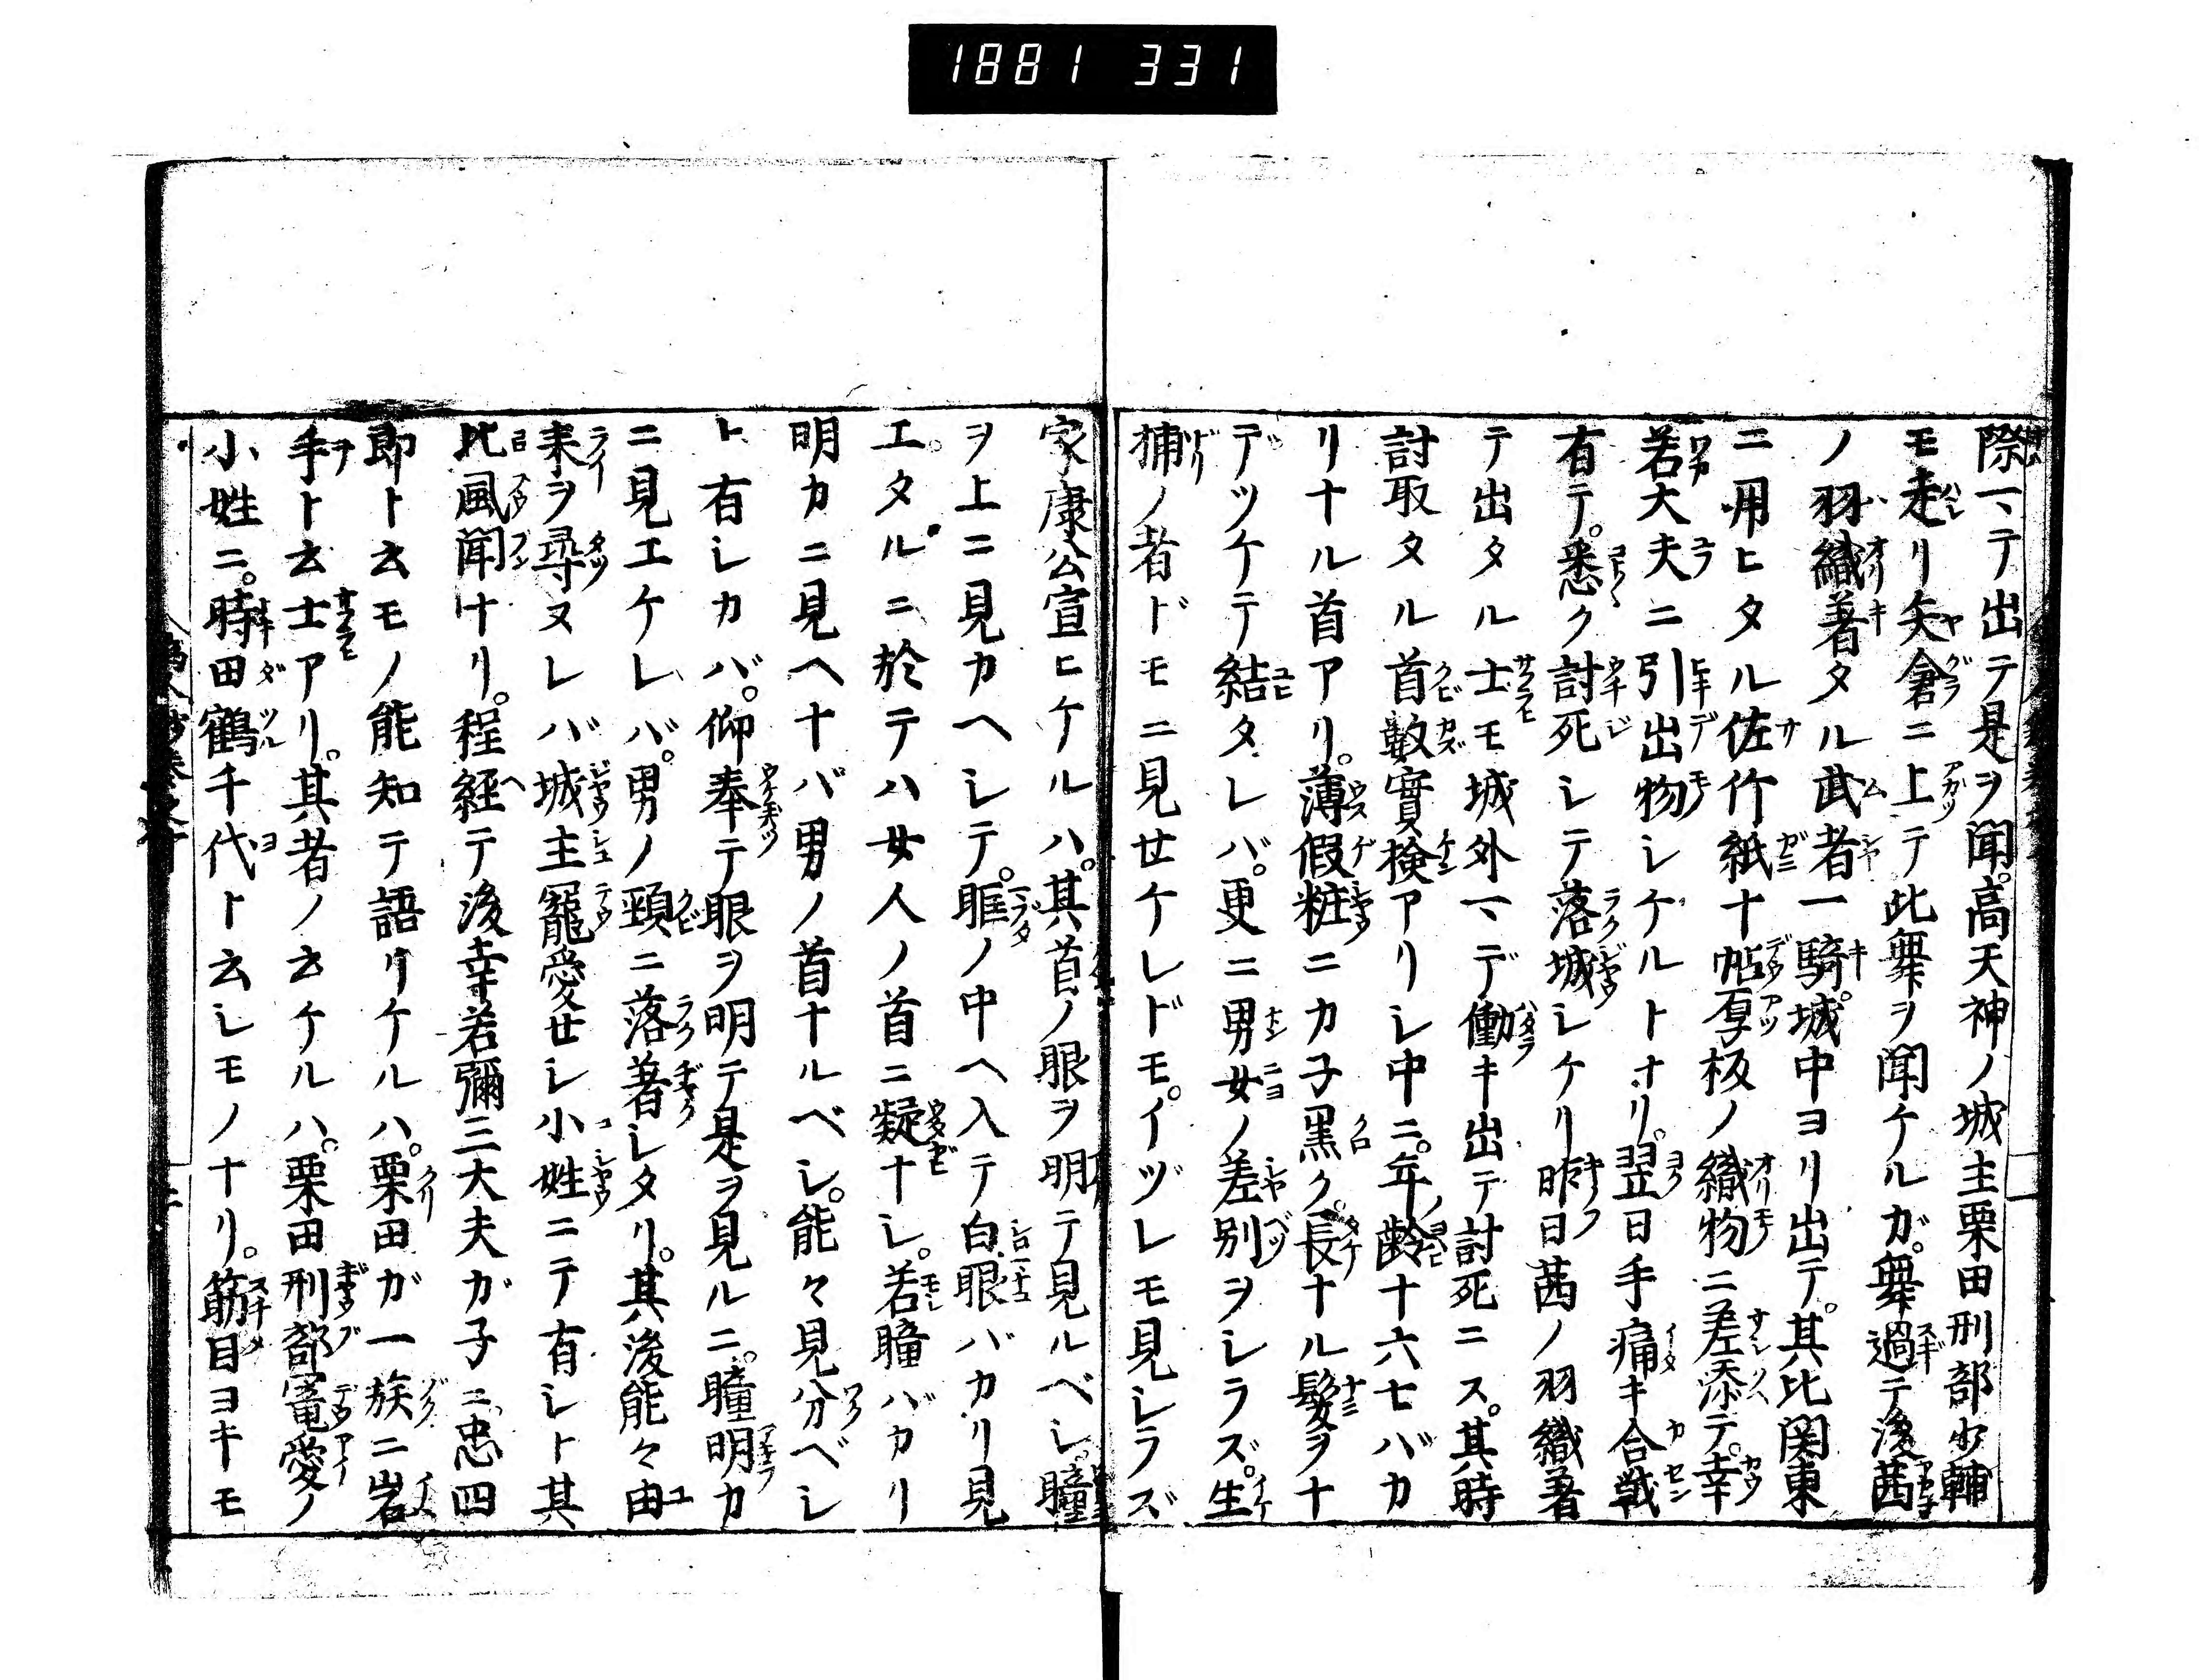 1881 331
際マテ出テ是ヲ聞。高天神ノ城主栗田刑部少輔
モ走リ矢倉ニ上テ此舞ヲ聞ケルガ。舞過テ後茜
ノ羽織著タル武者一騎。城中ヨリ出テ。其比関東
ニ用ヒタル佐竹紙十帖厚板ノ織物ニ差添テ。幸
若大夫ニ引出物シケルトナリ。翌日手痛キ合戦
有テ。悉ク討死シテ落城シケリ昨日茜ノ羽織著
テ出タル士モ城外マデ働キ出テ討死ニス。其時
討取タル首数實検アリシ中ニ。年齢十六七バカ
リナル首アリ。薄假粧ニカ子黒ク。長ナル髪ヲナ
デツケテ結タレバ。更ニ男女ノ差別ヲシラズ。生
捕ノ者ドモニ見セケレドモ。イヅレモ見シラズ
家康公宣ヒケルハ。其首ノ眼ヲ明テ見ルベシ。瞳
ヲ上ニ見カヘシテ。眶ノ中ヘ入テ白眼バカリ見
エタルニ於テハ女人ノ首ニ疑ナシ。若瞳バカリ
明カニ見ヘナバ男ノ首ナルベシ。能々見分ベシ
ト有シカバ。仰奉テ眼ヲ明テ是ヲ見ルニ。瞳明カ
ニ見エケレバ。男ノ頸ニ落著シタリ。其後能々由
来ヲ尋ヌレバ城主寵愛セシ小姓ニテ有シト其
比風聞ナリ。程経テ後幸若彌三大夫ガ子ニ忠四
郎ト云モノ能知テ語リケルハ。栗田ガ一族ニ岩
手ト云士アリ。其者ノ云ケルハ。栗田刑部寵愛ノ
小姓ニ。時田鶴千代ト云シモノナリ。筋目ヨキモ